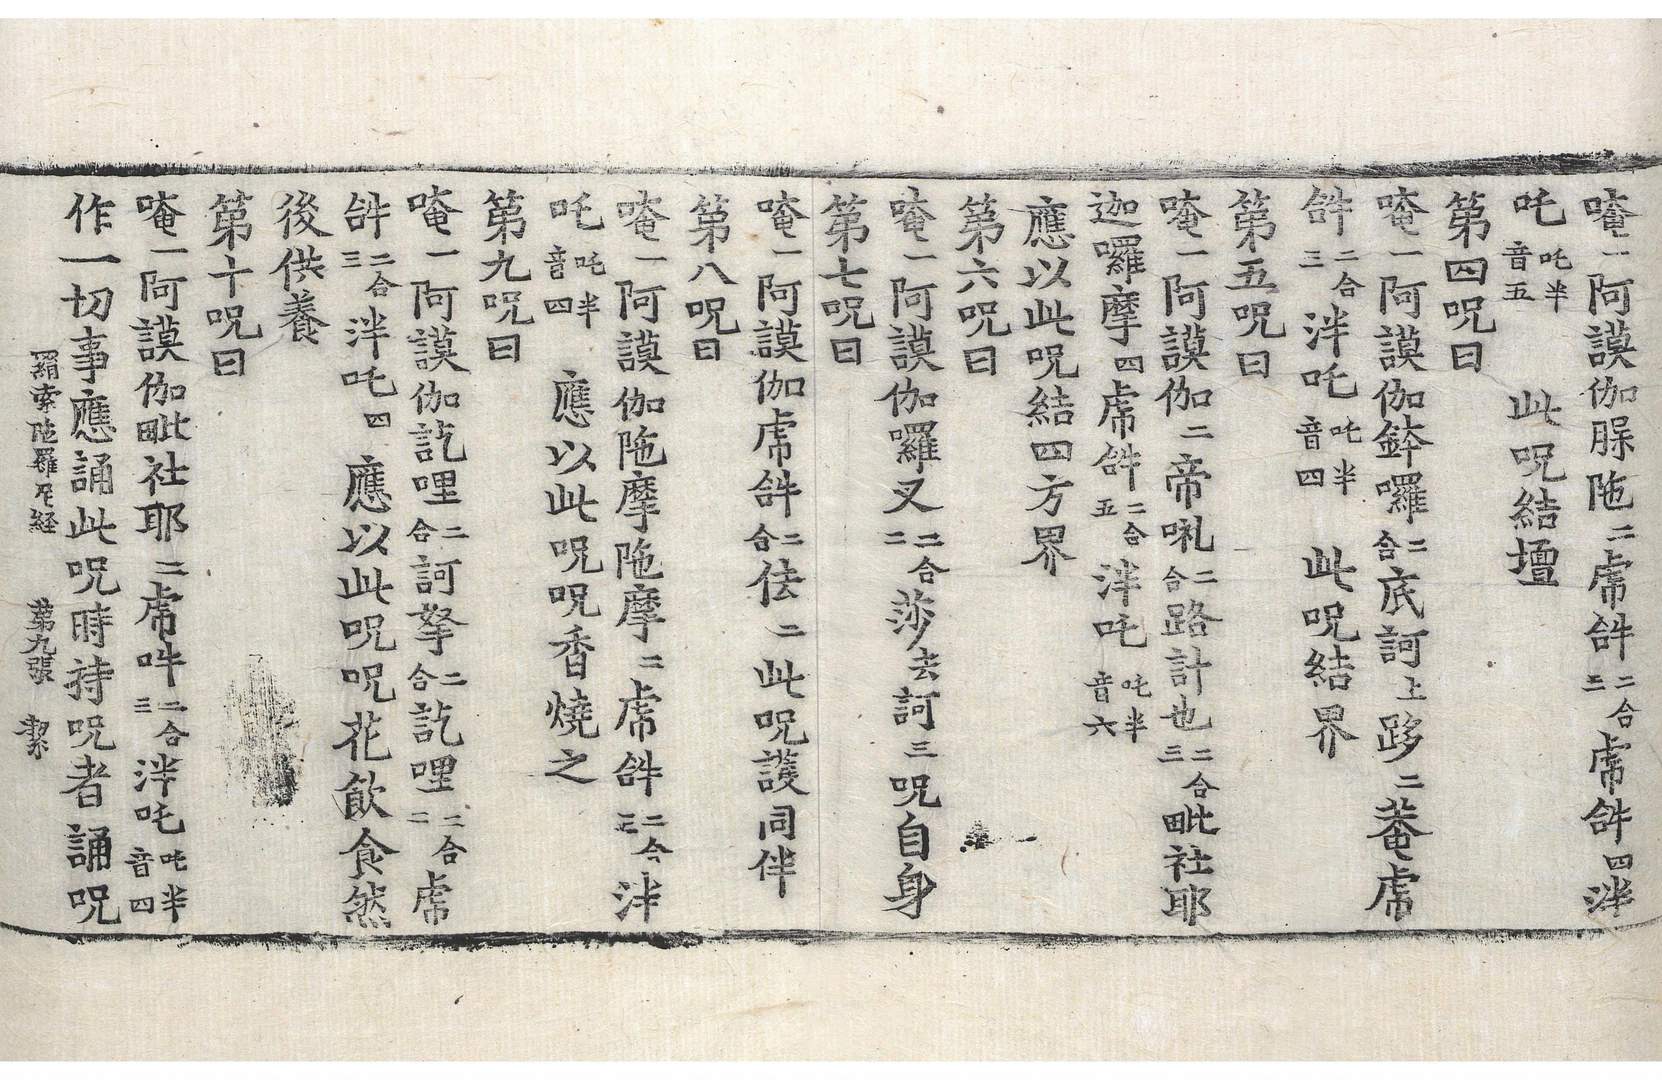 唵一阿謨伽脲陁二虎𤙖二合三虎𤙖四泮
吒吒半音五　此呪結壇
第四呪曰
唵一阿謨伽鉢囉二合底訶上跢二菴虎
𤙖二合三泮吒吒半音四　此呪結界
第五呪曰
唵一阿謨伽二帝㘑二合路計也二合三毗社耶
迦囉摩四虎𤙖二合五泮吒吒半音六
應以此呪結四方界
第六呪曰
唵一阿謨伽囉叉二合二莎去訶三呪自身
第七呪曰
唵一阿謨伽虎𤙖二合佉二此呪護同伴
第八呪曰
唵一阿謨伽陁摩陁摩二虎𤙖二合三泮
吒吒半音四　應以此呪呪香燒之
第九呪曰
唵一阿謨伽訖哩二合訶拏二合訖哩二合二虎
𤙖二合三泮吒四　應以此呪呪花飲食然
後供養
第十呪曰
唵一阿謨伽毗社耶二虎吽二合三泮吒吒半音四
作一切事應誦此呪時持呪者誦呪
羂索陁羅尼経　第九張　㓗